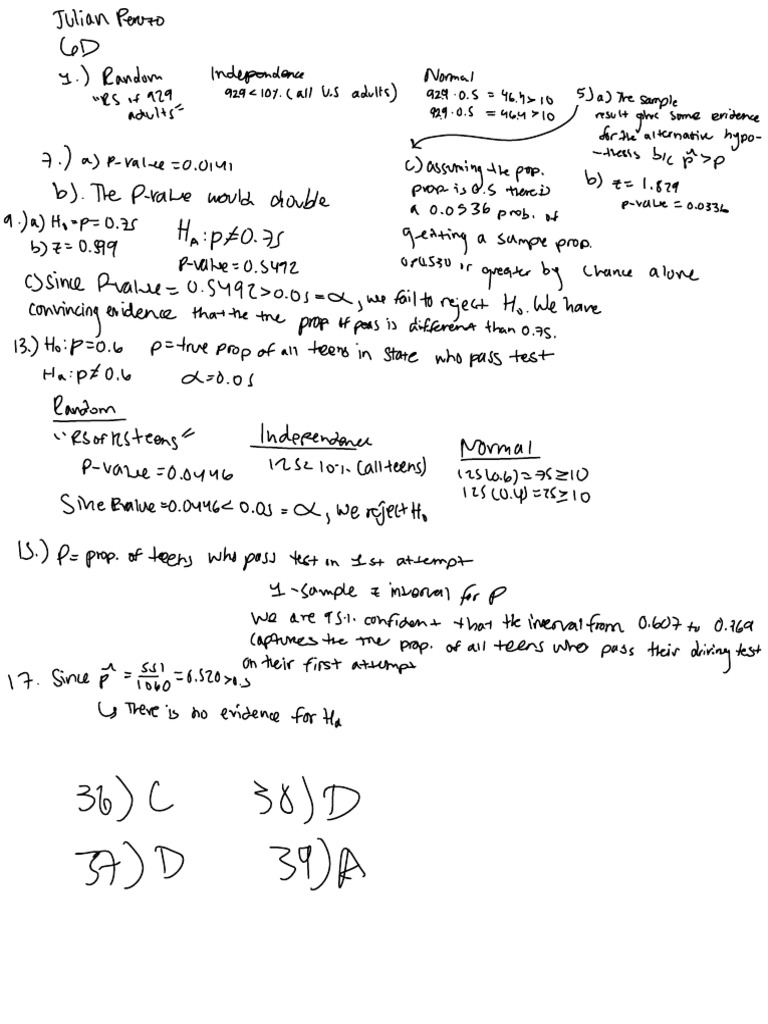 Julian
6D
1.) Random Independence Normal
"RS of 929 adults" 929 < 10% (all U.S adults) 929·0.5 = 464 > 10
929·0.5 = 464 > 10
5) a) The sample
result give some evidence
for the alternative hypo-
-thesis b/c p̂ > p
b) z = 1.829
p-value = 0.0336
c) assuming the pop.
prop is 0.5 there is
a 0.0536 prob. of
getting a sample prop.
or greater by chance alone
7.) a) P-value = 0.0141
b). The P-value would double
9.) a) H₀ = p = 0.75 Hₐ: p ≠ 0.75
b) z = 0.599 P-value = 0.5492
c) since P-value = 0.5492 > 0.05 = α, we fail to reject H₀. We have
convincing evidence that the true prop of pass is different than 0.75.
13.) H₀: p = 0.6 p = true prop of all teens in state who pass test
Hₐ: p ≠ 0.6 α = 0.05
Random
"RS of 125 teens" Independence Normal
P-value = 0.0446 125 < 10% (all teens) 125(0.6) = 75 ≥ 10
125(0.4) = 25 ≥ 10
Since P-value = 0.0446 < 0.05 = α, we reject H₀
15.) P = prop. of teens who pass test in 1st attempt
1-sample z interval for P
We are 95% confident that the interval from 0.607 to 0.769
captures the true prop. of all teens who pass their driving test
on their first attempt
17. Since p̂ = 551/1060 = 0.520 > 0.5
↳ There is no evidence for Hₐ
36) C 38) D
37) D 39) A